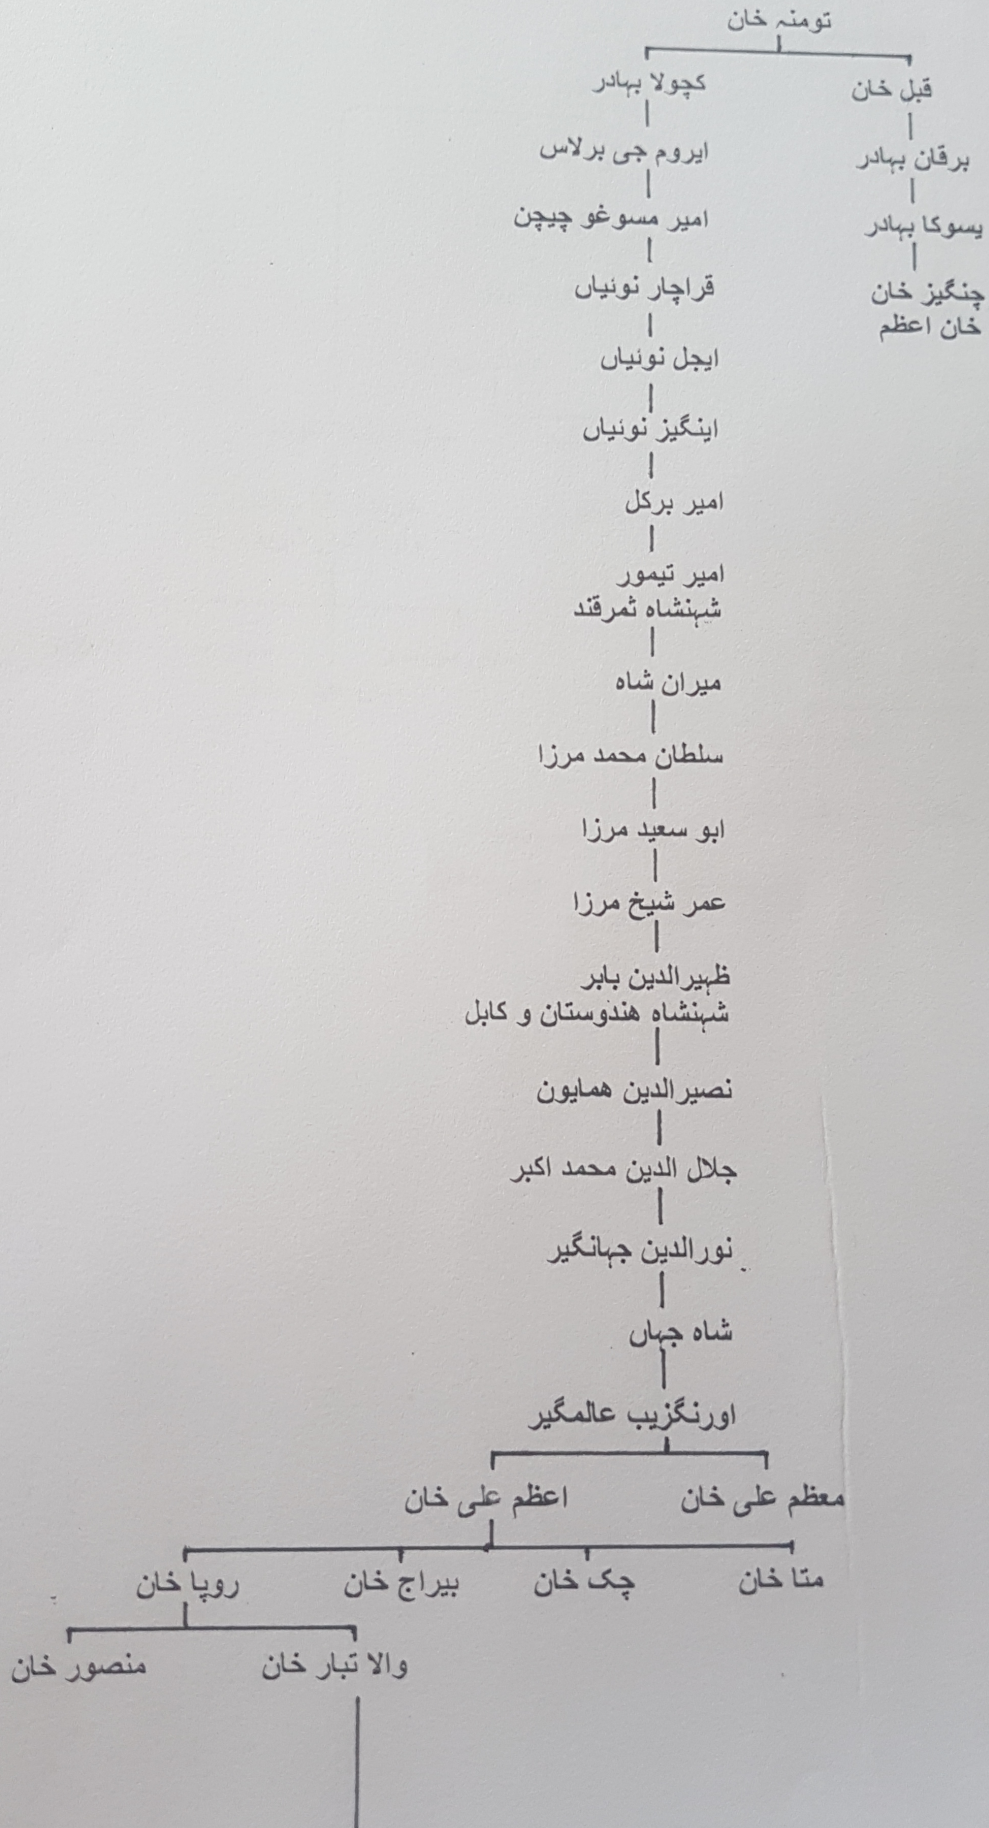 تومنہ خان
قبل خان
کچولا بہادر
برقان بہادر
ایروم جی برلاس
یسوکا بہادر
امیر مسوغو چیچن
چنگیز خان
خان اعظم
قراچار نوئیاں
ایجل نوئیاں
اینگیز نوئیاں
امیر برکل
امیر تیمور
شہنشاہ ثمرقند
میران شاہ
سلطان محمد مرزا
ابو سعید مرزا
عمر شیخ مرزا
ظہیرالدین بابر
شہنشاہ ھندوستان و کابل
نصیرالدین ھمایون
جلال الدین محمد اکبر
نورالدین جہانگیر
شاہ جہاں
اورنگزیب عالمگیر
معظم علی خان
اعظم علی خان
متا خان
چک خان
بیراج خان
روپا خان
والا تبار خان
منصور خان